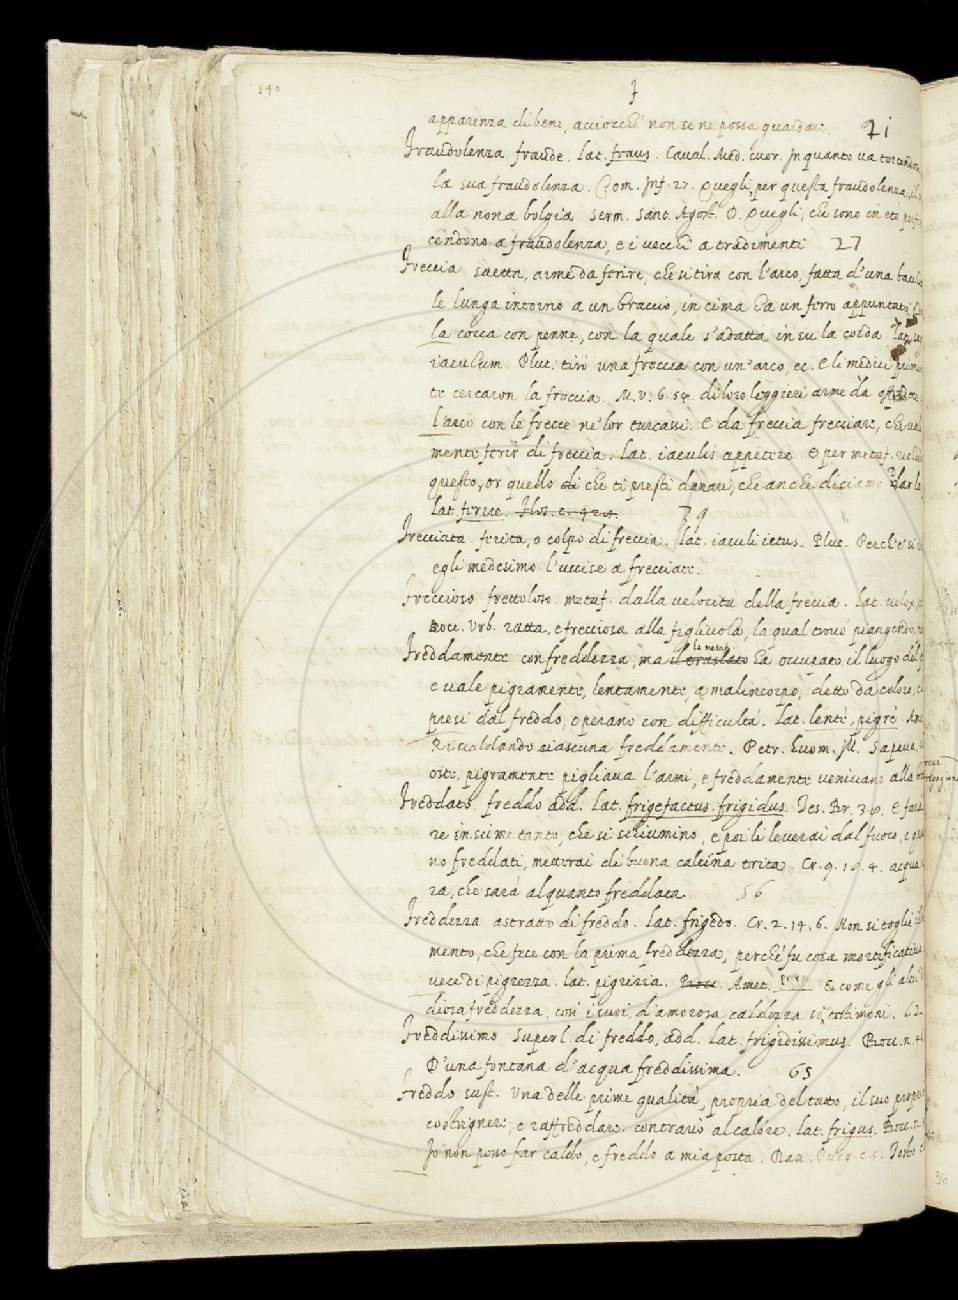 140
F
apparenza di bene, acciocchè non se ne possa guardare. 21
Fraudolenza fraude. lat. fraus. Caval. Med. cuor. In quanto va torcendo
la sua fraudolenza. Com. Inf. 27. Quegli, per questa fraudolenza, il
alla nona bolgia. Serm. Sant. Agost. D. Quegli, che sono in età
cendono a fraudolenza, e i vecchi a tradimenti 27
Freccia saetta, arme da ferire, che si tira con l'arco, fatta d'una
le lunga intorno a un braccio, in cima ha un ferro appuntato,
la cocca con penne, con la quale s'adatta in su la corda. lat.
iaculum. Plut. tirò una freccia con un'arco, ec. E li medici
te cercaron la freccia. M. V. 6. 54. di loro leggieri arme da
l'arco con le frecce ne' lor turcassi. E da freccia frecciare, che
mente ferir di freccia. lat. iaculis appetere. E per metaf.
questo, or quello di che ti presti danari, che anche diciamo Dar le
lat. ferire. 29
Frecciata ferita, o colpo di freccia. lat. iaculi ictus. Plut. Perch'e' si
egli medesimo l'uccise a frecciate.
Freccioso frettoloso. metaf. dalla velocità della freccia. lat. velox,
Bocc. Urb. ratta, e frecciosa alla figlivola, la qual trovò piangendo,
Freddamente con freddezza, ma il traslato la metaf. ha occupato il luogo del
e vale pigramente, lentamente, a malincorpo, detto da coloro,
presi dal freddo, operano con difficultà. lat. lentè, pigrè
Riscaldando ciascuna freddamente. Petr. huom. Ill. Sapeva
oste, pigramente pigliava l'armi, e freddamente venivano alla
Freddato freddo add. lat. frigefactus. frigidus. Tes. Pov. E
re insieme tanto, che si schiumino, e poi li leverai dal fuoco, e
no freddati, mettivi di buona calcina trita. Cr. 9. 18. 4. acqua
ra, che sarà alquanto freddata. 56
Freddezza astratto di freddo. lat. frigedo. Cr. 2. 14. 6. Non si toglie
mento, che fece con la prima freddezza, perchè fu cosa mortificativa
vece di pigrezza. lat. pigrizia. Bocc. Amet. E come gli
diosa freddezza, così i suoi, d'amorosa caldezza 62
Freddissimo Superl. di freddo, add. lat. frigidissimus. Bocc. n. 4
D'una fontana d'acqua freddissima. 65
Freddo sust. Una delle prime qualità, propria del tutto, il suo proprio
costrignere, e raffreddare. contrario al calore. lat. frigus. Bocc. n.
Io non posso far caldo, e freddo a mia posta. Dan. Purg. c. 5. Tosto